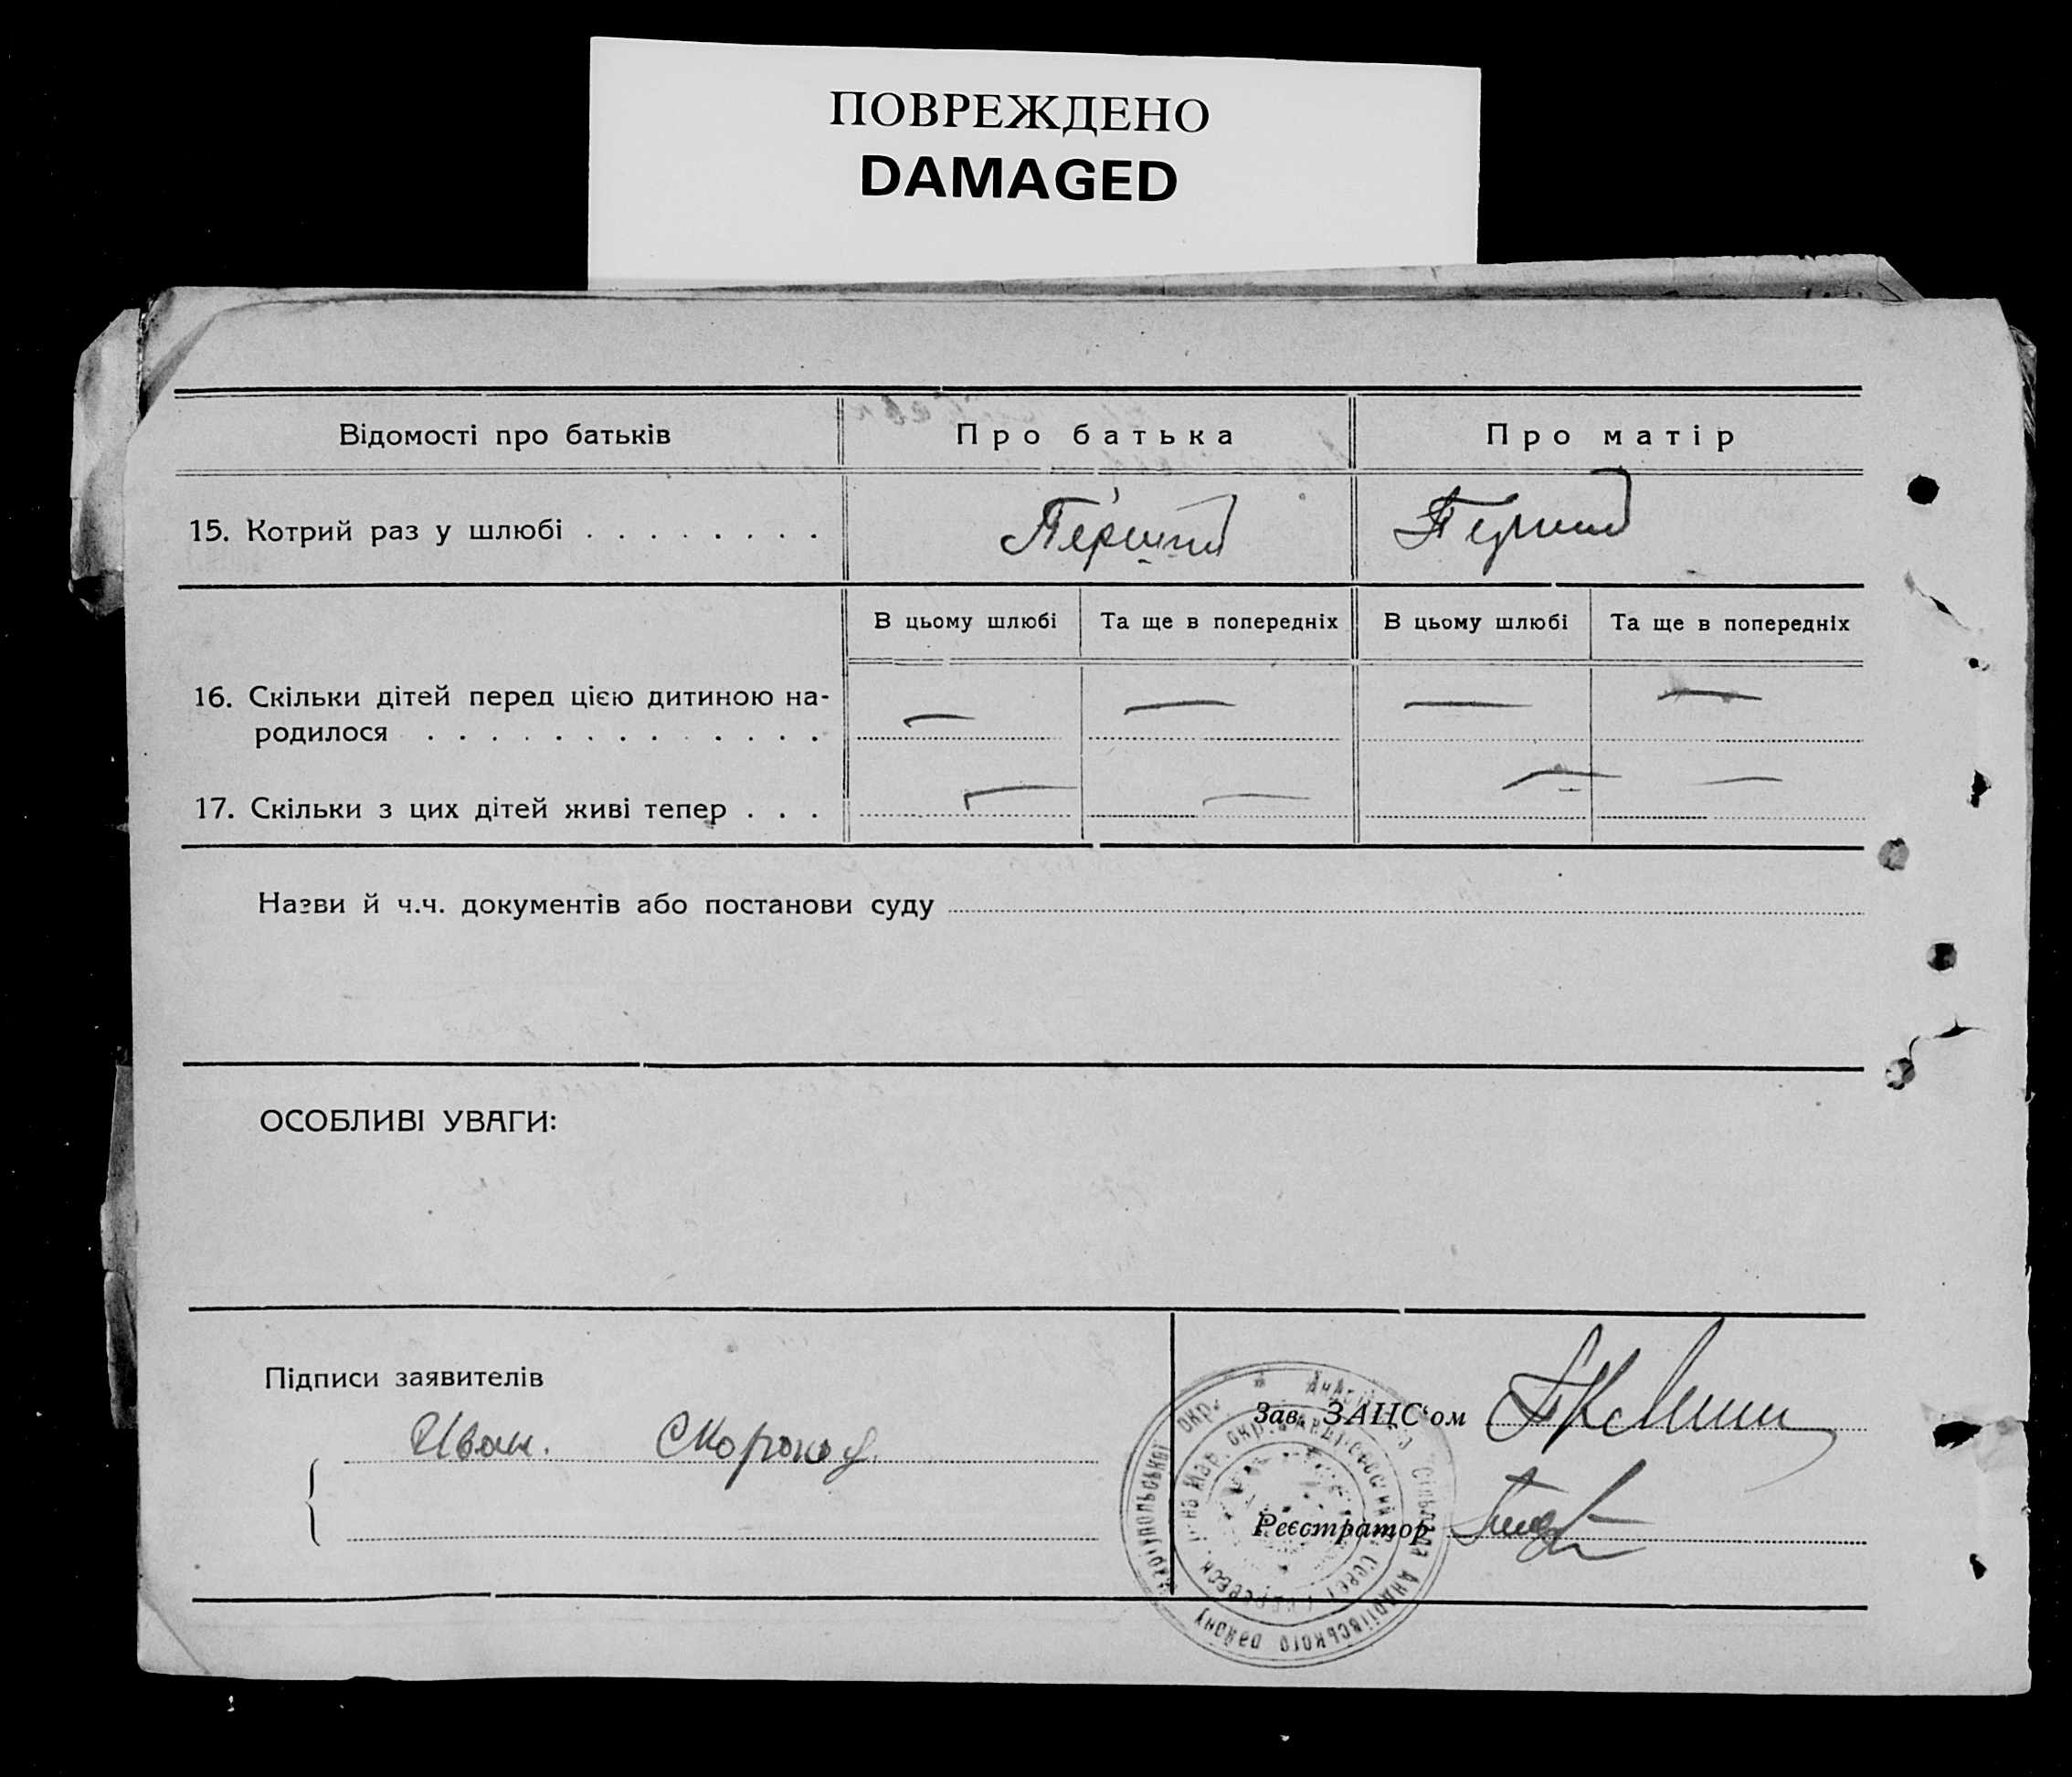 ПОВРЕЖДЕНО
DAMAGED
Відомості про батьків
Про батька
Про матір
15. Котрий раз у шлюбі . . . . . . . .
Перший
Перший
В цьому шлюбі
Та ще в попередніх
В цьому шлюбі
Та ще в попередніх
16. Скільки дітей перед цією дитиною на-
родилося . . . . . . . . . . . . .
— — — —
17. Скільки з цих дітей живі тепер . . .
— — — —
Назви й ч.ч. документів або постанови суду
ОСОБЛИВІ УВАГИ:
Підписи заявителів
Зав. ЗАЦС‘ом
Иван.
Реєстратор
Сільрада Андріївського району Маріупольської окр.